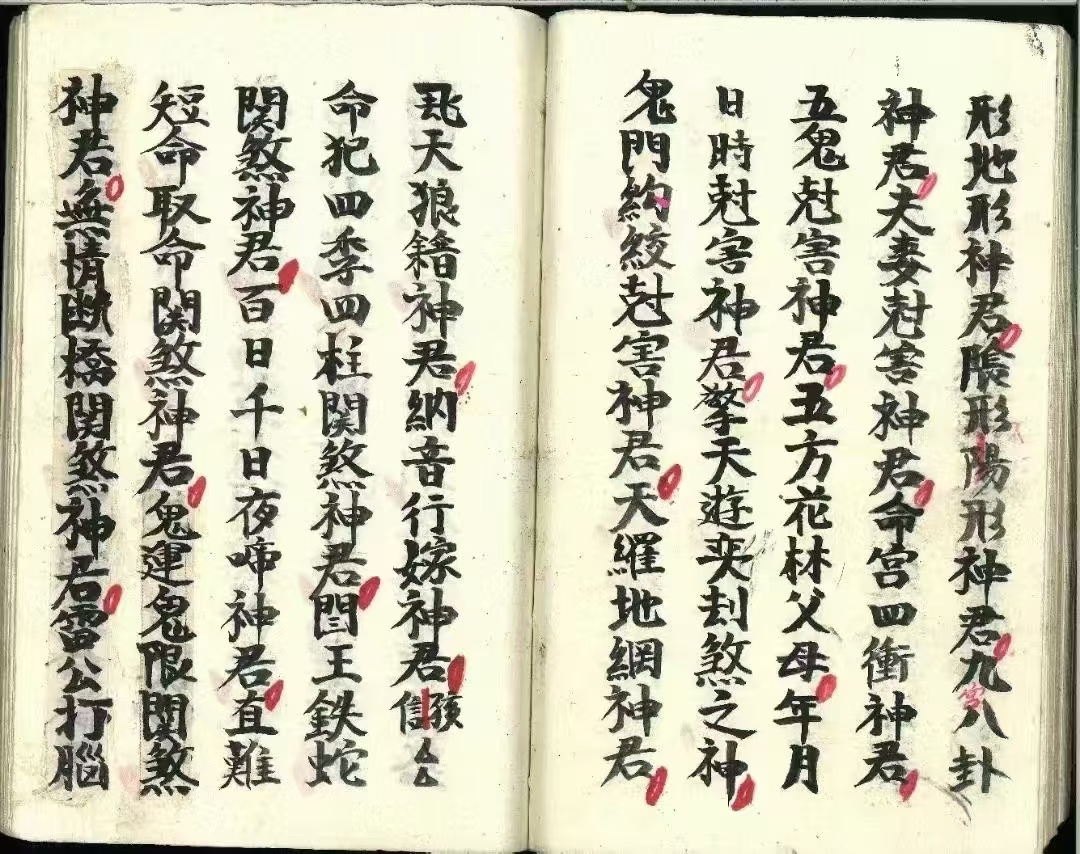 形地形神君陰形陽形神君九宮八卦
神君夫妻尅害神君命宮四衝神君
五鬼尅害神君五方花林父母年月
日時尅害神君擎天遊奕刦煞之神
鬼門約絞尅害神君天羅地網神君
天狼籍神君納音行嫁神君信孩厶厶
命犯四季四柱関煞神君閆王鉄蛇
関煞神君百日千日夜啼神君直難
短命取命関煞神君鬼運鬼限関煞
神君無情断橋関煞神君雷公打腦